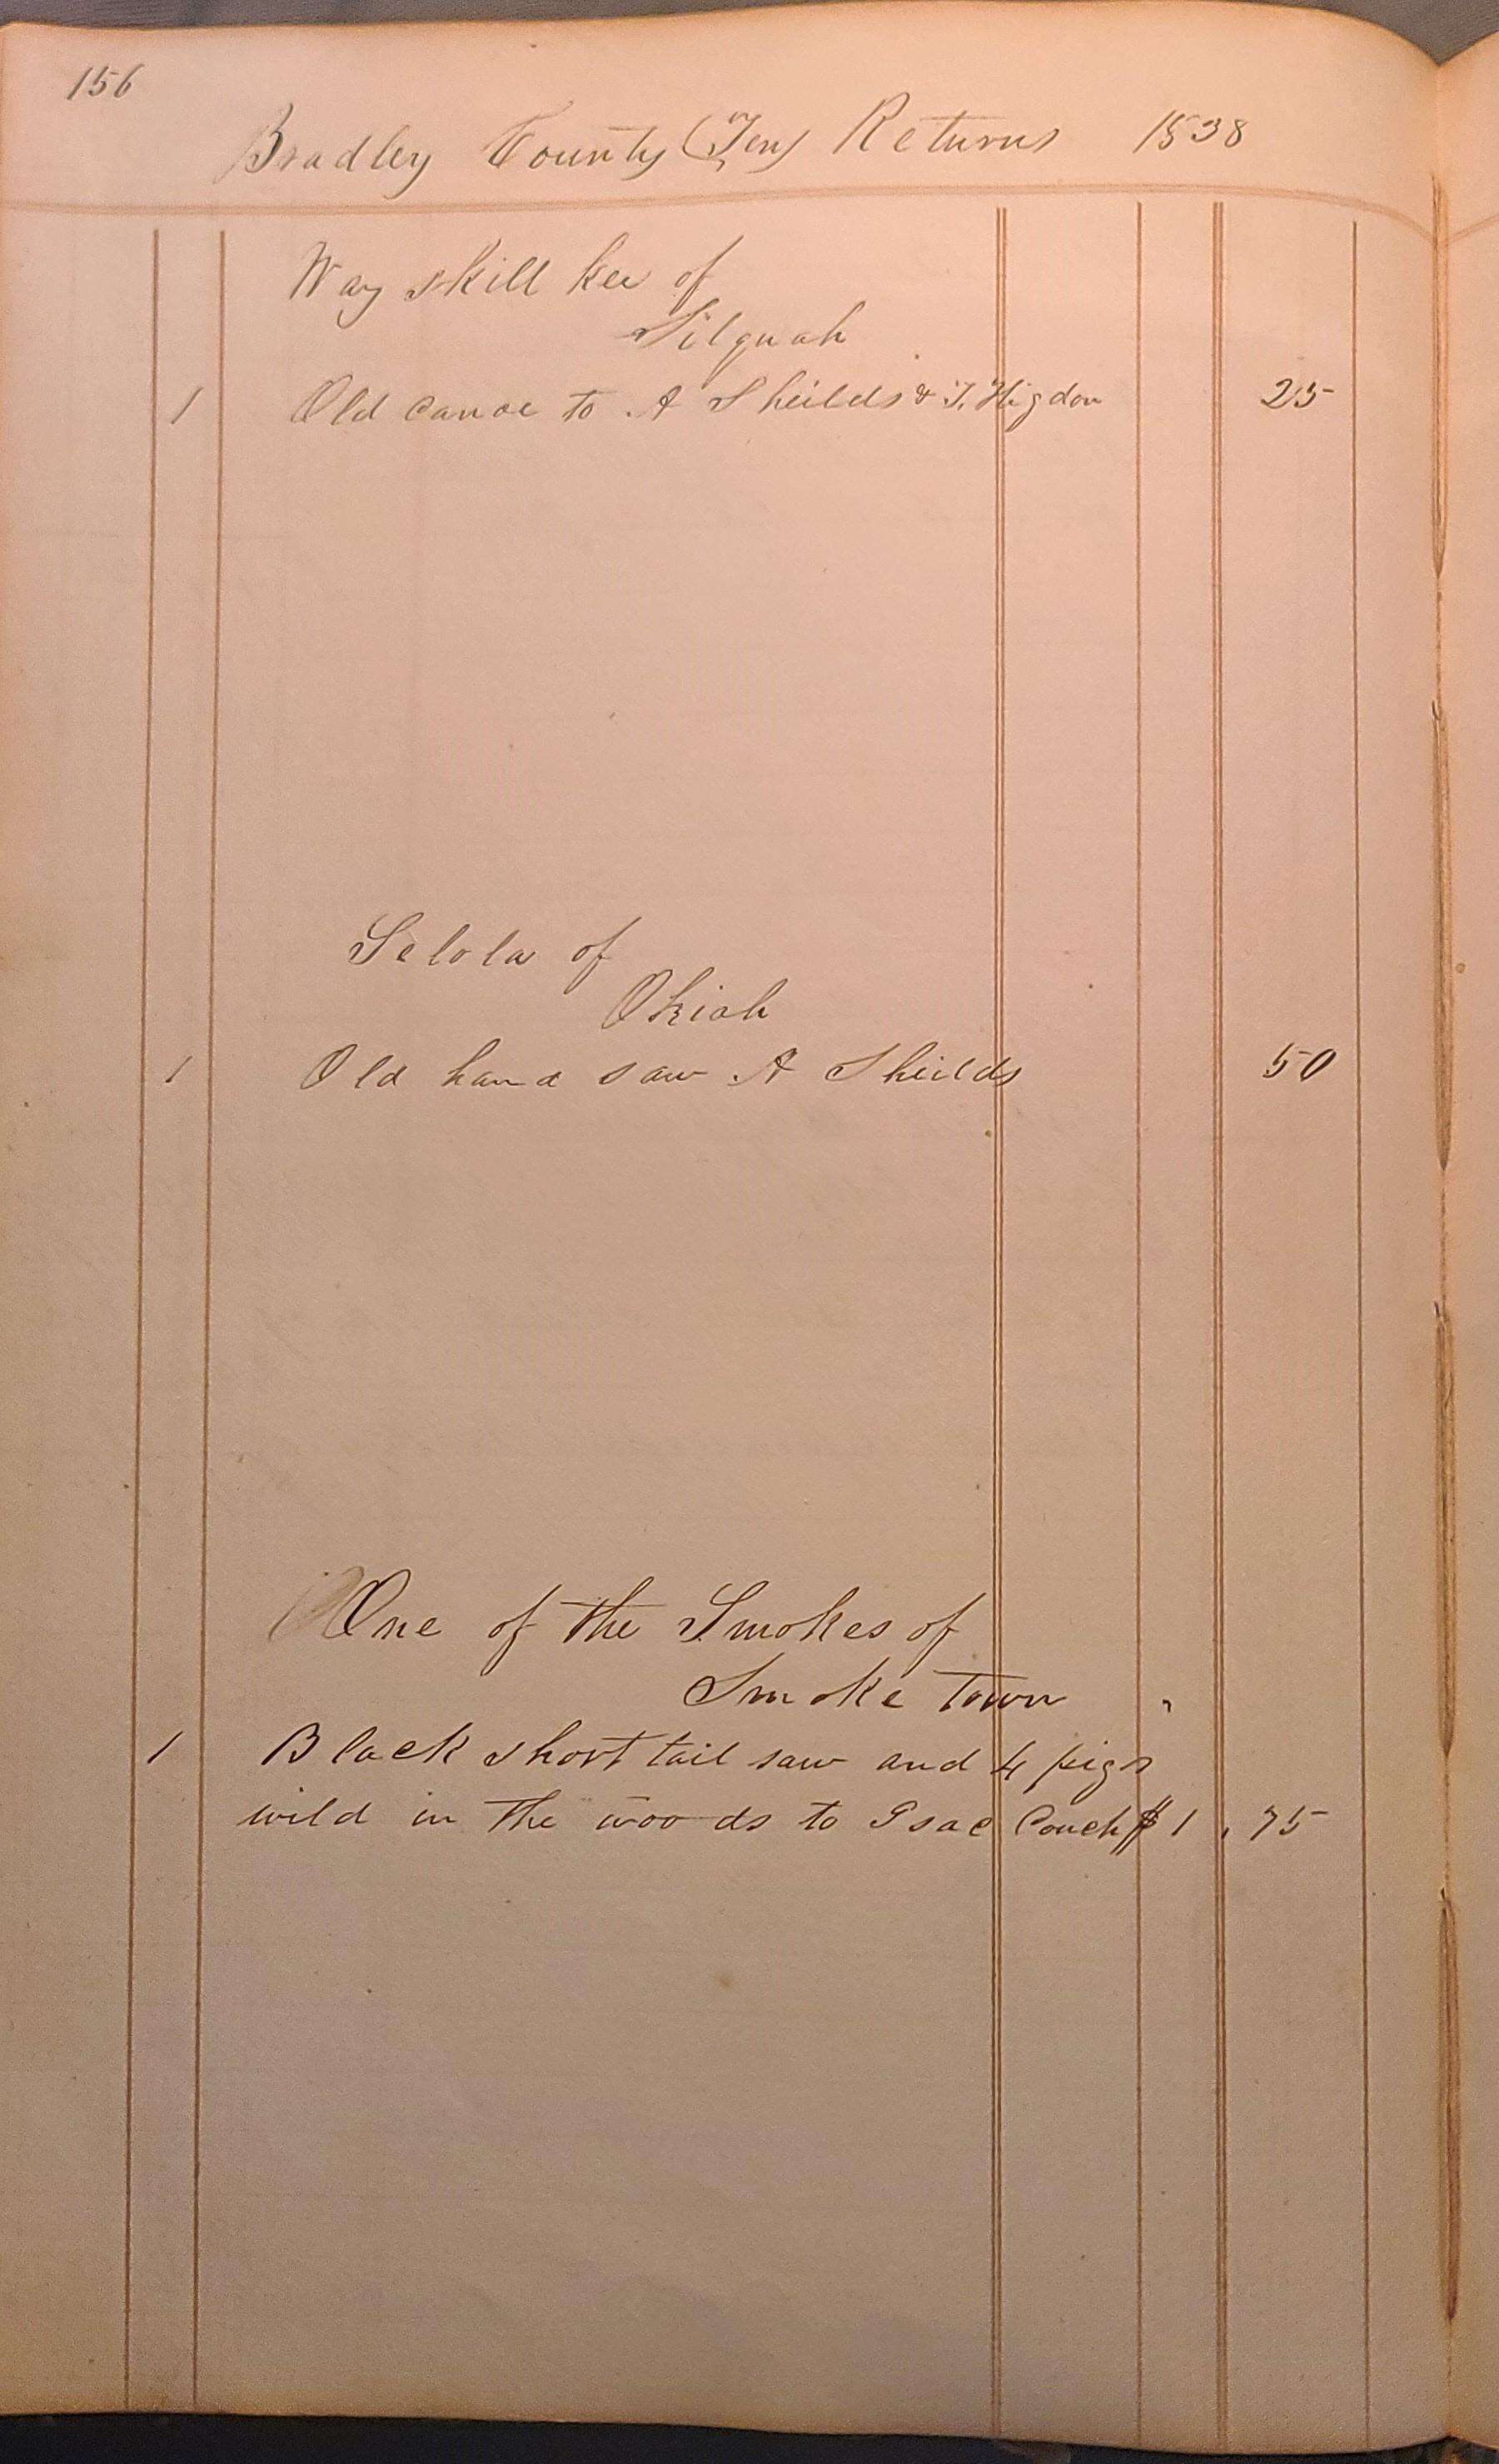 156
Bradley County (Ten) Returns 1838
Way skill kee of
Silquah
1 Old canoe to A Sheilds & T. Higdon 25
Selola of
Okiah
1 Old hand saw A Sheilds 50
One of the Smokes of
Smoke Town "
1 Black short tail saw and 4 pigs
wild in the woods to Isac Couch $1.75